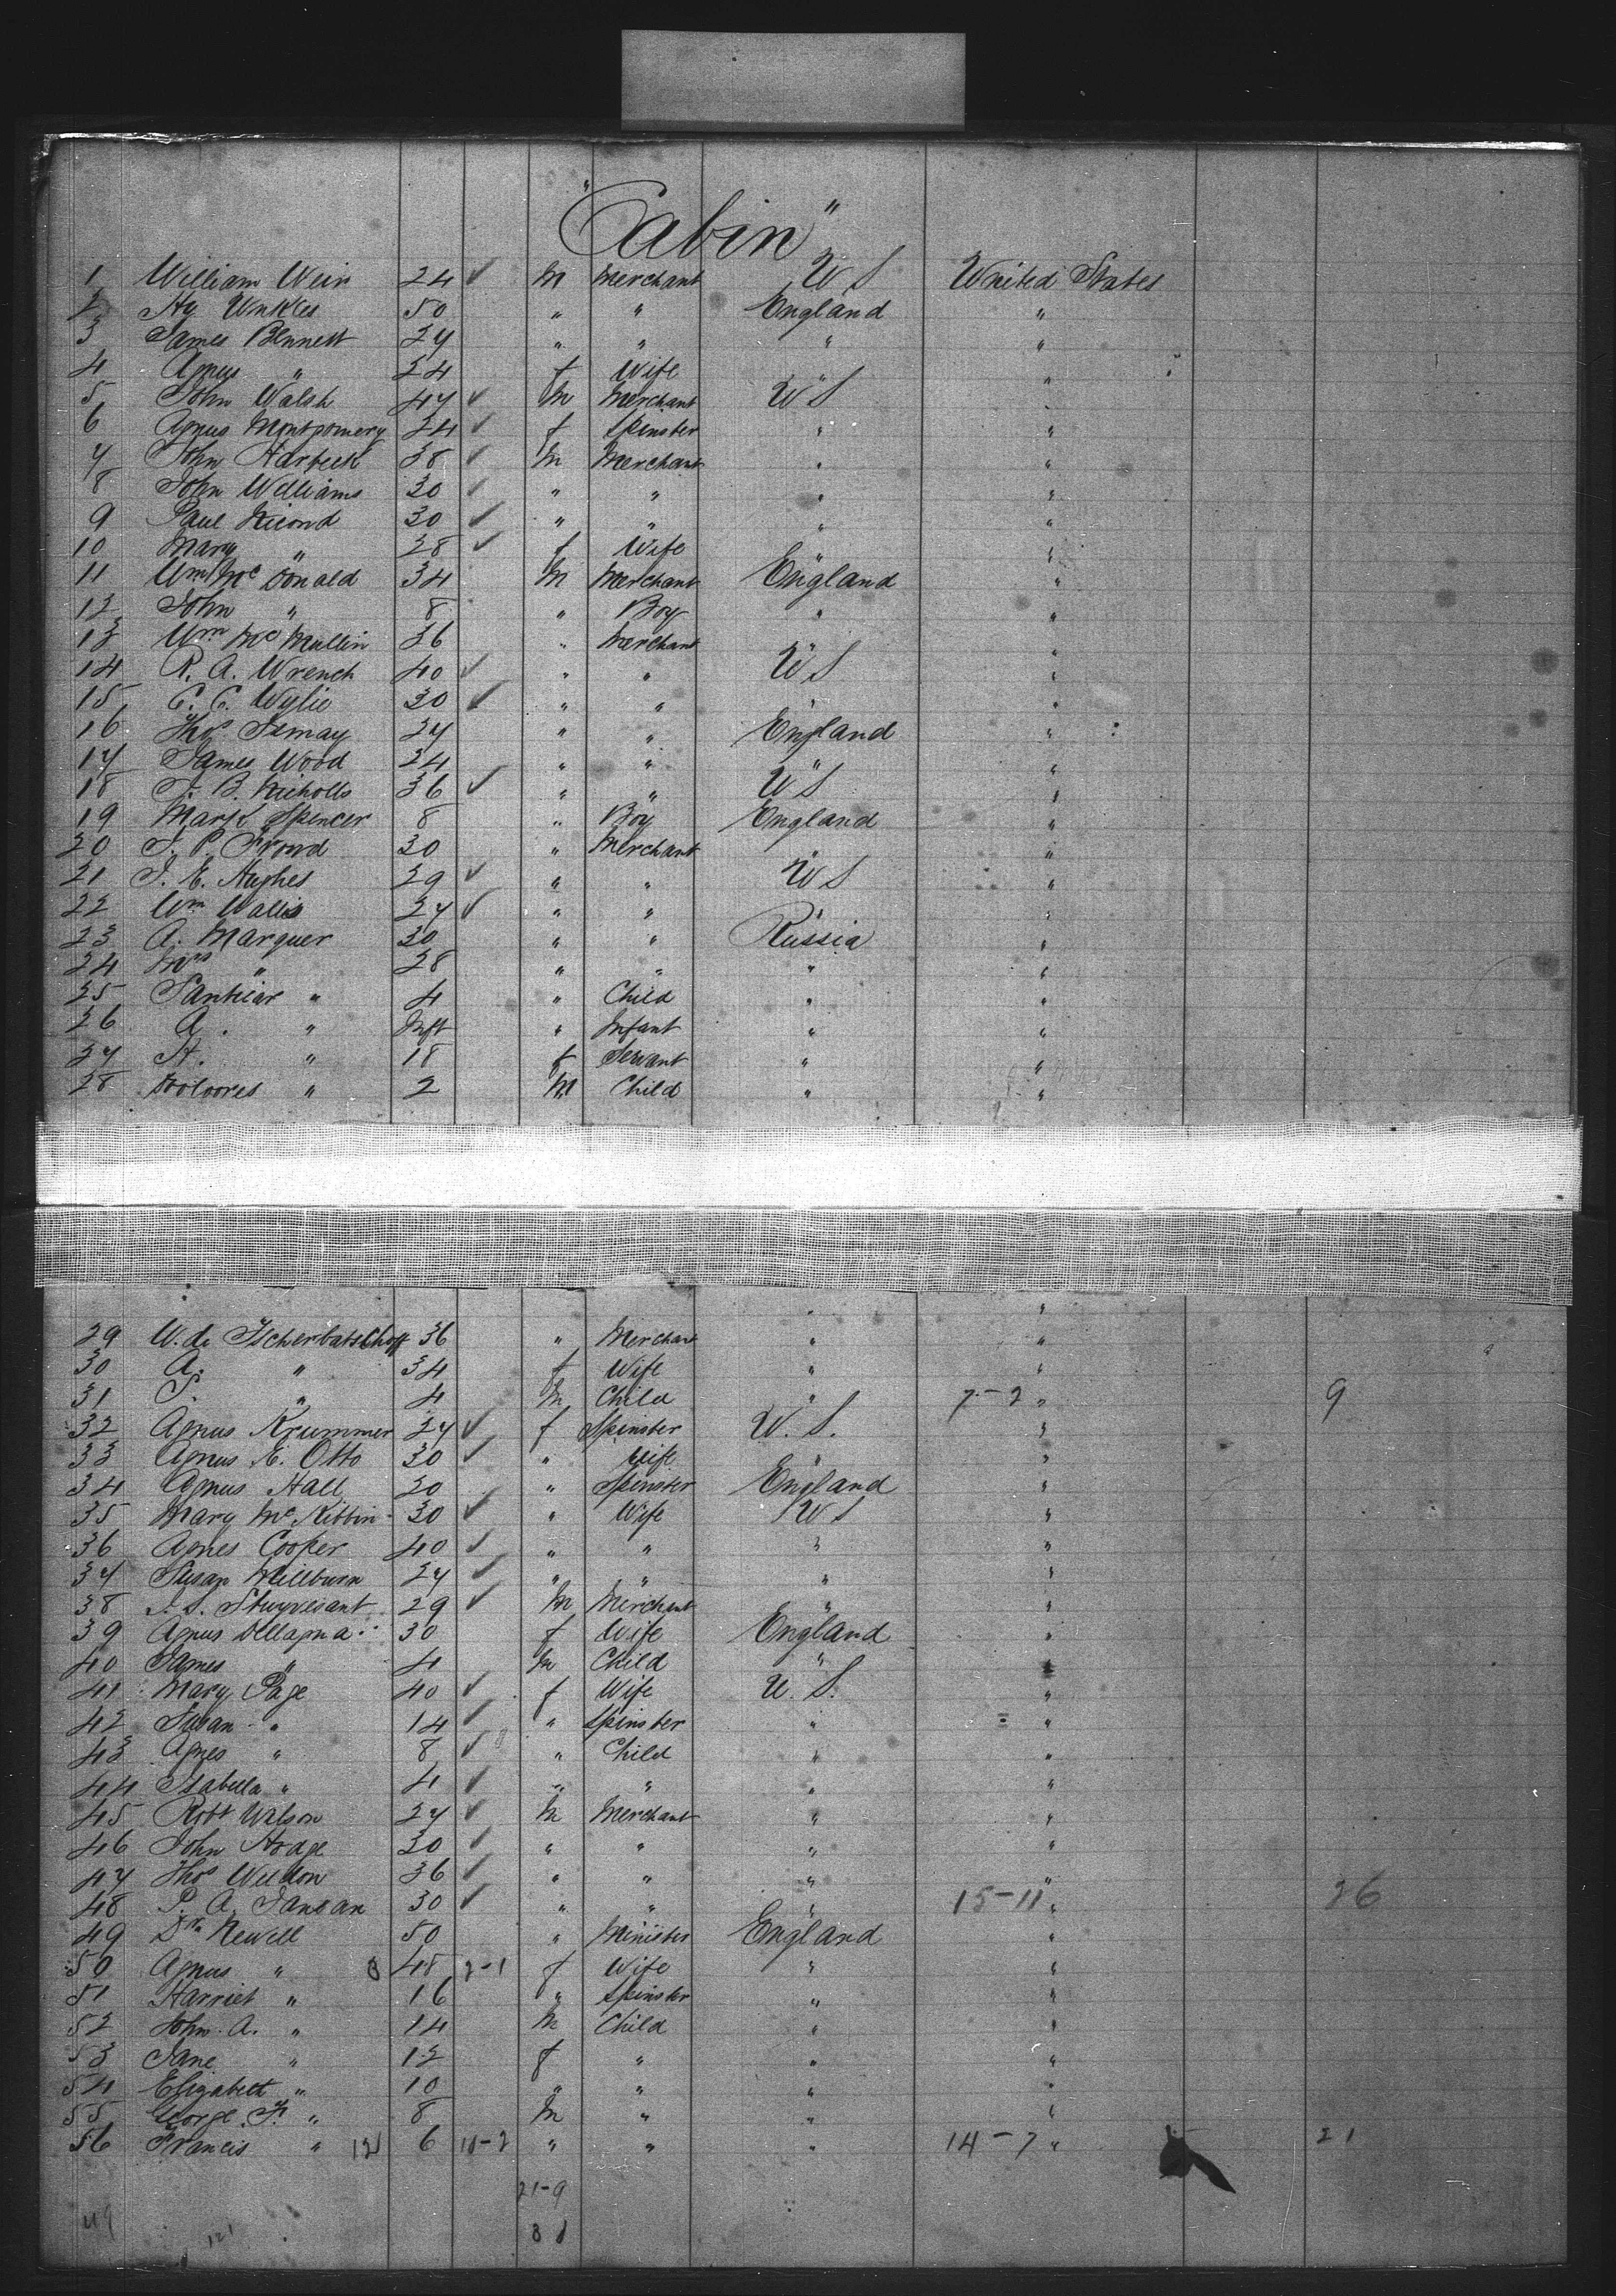 "Cabin"
1 William Weir 24 ✓ M Merchant U S United States
2 Hy Unkles 50 " " England "
3 James Bennett 27 " " " "
4 Agnus " 24 f Wife " "
5 John Walsh 47 ✓ M Merchant U S "
6 Agnus Montgomery 24 ✓ f Spinster " "
7 John Harbeck 38 ✓ M Merchant " "
8 John Williams 30 ✓ " " " "
9 Paul 30 ✓ " " " "
10 Mary " 28 ✓ f Wife " "
11 Wm McDonald 34 M Merchant England "
12 John " 8 " Boy " "
13 Wm McMullin 36 " Merchant " "
14 R. A. Wrench 40 ✓ " " U S "
15 C. C. Wylie 30 ✓ " " " "
16 Thos Ismay 27 " " England "
17 James Wood 24 " " " "
18 J. B. Nicholls 36 ✓ " " U S "
19 Mark Spencer 8 " Boy England "
20 J. P. Frowd 30 " Merchant " "
21 J. E. Hughes 29 ✓ " " U S "
22 Wm Wallis 27 ✓ " " " "
23 A. Marquer 30 " " Russia "
24 Mrs " 28 " " " "
25 " 4 " Child " "
26 A. " Inft " Infant " "
27 H. " 18 f Servant " "
28 Doloores " 2 M Child " "
29 W. de Tscherbatschoff 36 " Merchant " "
30 A. " 34 f Wife " "
31 P. " 4 M Child " 7-2 " 9
32 Agnus Krummer 27 ✓ f Spinster U. S. "
33 Agnus E. Otto 30 ✓ " Wife " "
34 Agnus Hall 20 " Spinster England "
35 Mary McKibbin 30 ✓ " Wife U S "
36 Agnes Cooper 40 ✓ " " " "
37 Susan Millburn 27 ✓ " " " "
38 J. S. Stuyvesant 29 ✓ M Merchant " "
39 Agnus Dellagma 30 f Wife England "
40 James " 4 M Child " "
41 Mary Page 40 ✓ f Wife U. S. "
42 Susan " 14 ✓ " Spinster " "
43 Agnes " 8 ✓ " Child " "
44 Isabella " 4 ✓ " " " "
45 Robt Wilson 27 ✓ M Merchant " "
46 John Hodge 30 ✓ " " " "
47 Thos Weldon 36 ✓ " " " "
48 P. A. Jansan 30 ✓ " " " 15-11 " 26
49 Dr Newell 50 " Minister England "
50 Agnus " 8 48 2-1 f Wife " "
51 Harriet " 16 " Spinster " "
52 John A. " 14 M Child " "
53 Jane " 12 f " " "
54 Elizabeth " 10 " " " "
55 George F. " 8 M " " "
56 Francis " 12 6 11-2 " " " 14-7 " 21
21-9
49 121 31